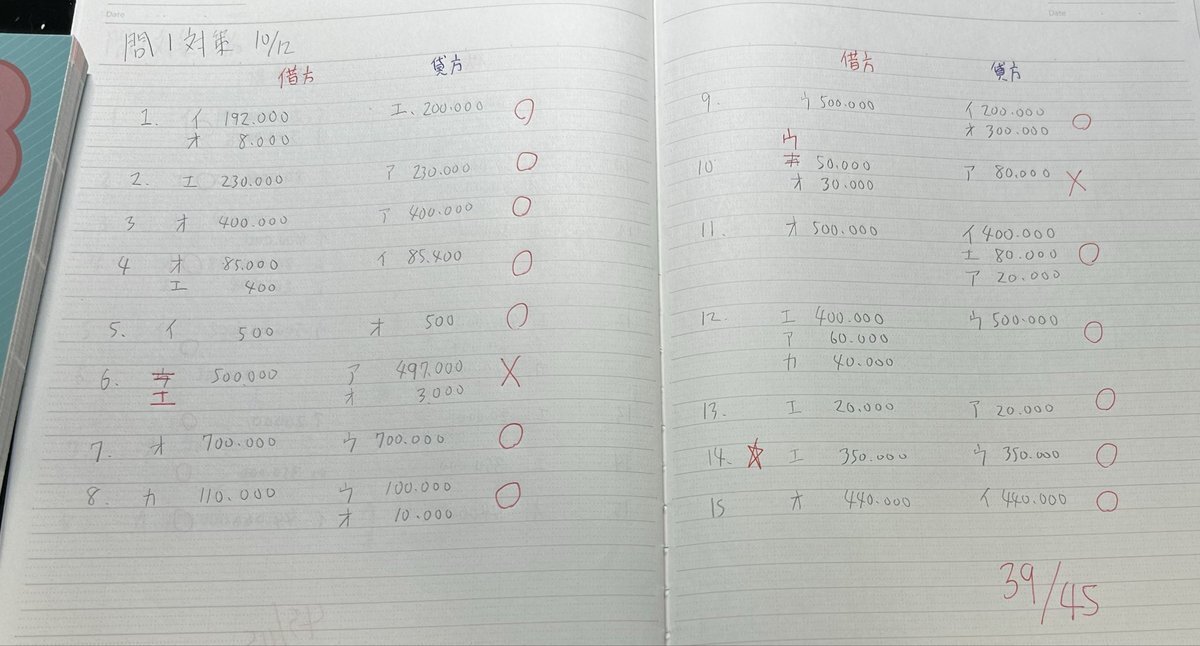 Date
問1対策 10/12
借方 貸方
1. イ 192.000 エ. 200.000
オ 8.000
2. エ 230.000 ア 230.000
3 オ 400.000 ア 400.000
4 オ 85.000 イ 85.400
エ 400
5. イ 500 オ 500
6. 500000 ア 497.000
エ オ 3.000
7. オ 700.000 ウ 700.000
8. カ 110.000 ウ 100.000
オ 10.000
Date
借方 貸方
9. ウ 500.000 イ 200.000
オ 300.000
ウ
10 50.000 ア 80.000
オ 30.000
11. オ 500.000 イ 400.000
エ 80.000
ア 20.000
12. エ 400.000 ウ 500.000
ア 60.000
カ 40.000
13. エ 20.000 ア 20.000
14. エ 350.000 ウ 350.000
15 オ 440.000 イ 440.000
39/45